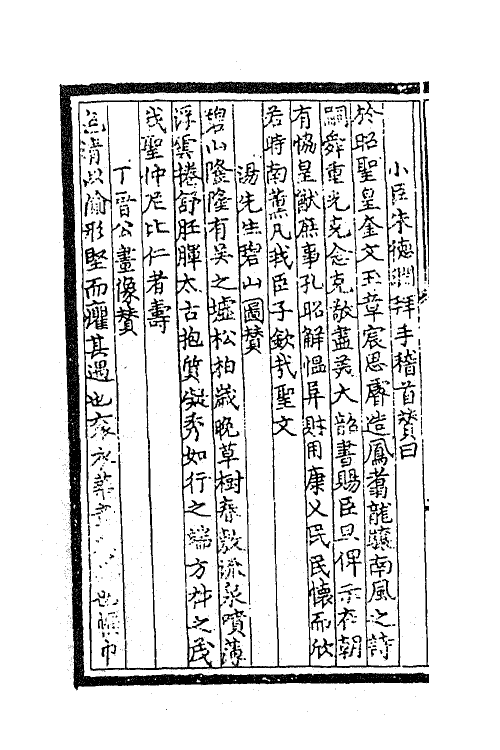 小臣朱德潤拜手稽首贊曰
於昭聖皇奎文玉章宸思睿造鳳翥龍驤南風之詩
嗣舜重光克念克敬盡美大韶書賜臣旦俾示在朝
有恊皇猷庶事孔昭解愠阜財用康乂民民懷而欣
若時南薫凡我臣子欽哉聖文
湯先生碧山圖贊
碧山隆隆有吳之墟松柏歲晚草樹春敷流泉噴薄
浮雲捲舒胚暉太古抱質凝秀如行之端方升之茂
我聖仲尼比仁者壽
丁晉公畫像贊
色清以腴形堅而癯其遇也衮衣 也幅巾